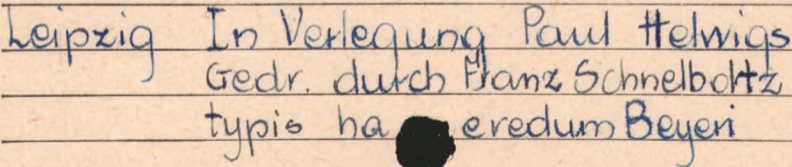 Leipzig In Verlegung Paul Helwigs
Gedr. durch Franz Schnelboltz
typis ha eredum Beyeri